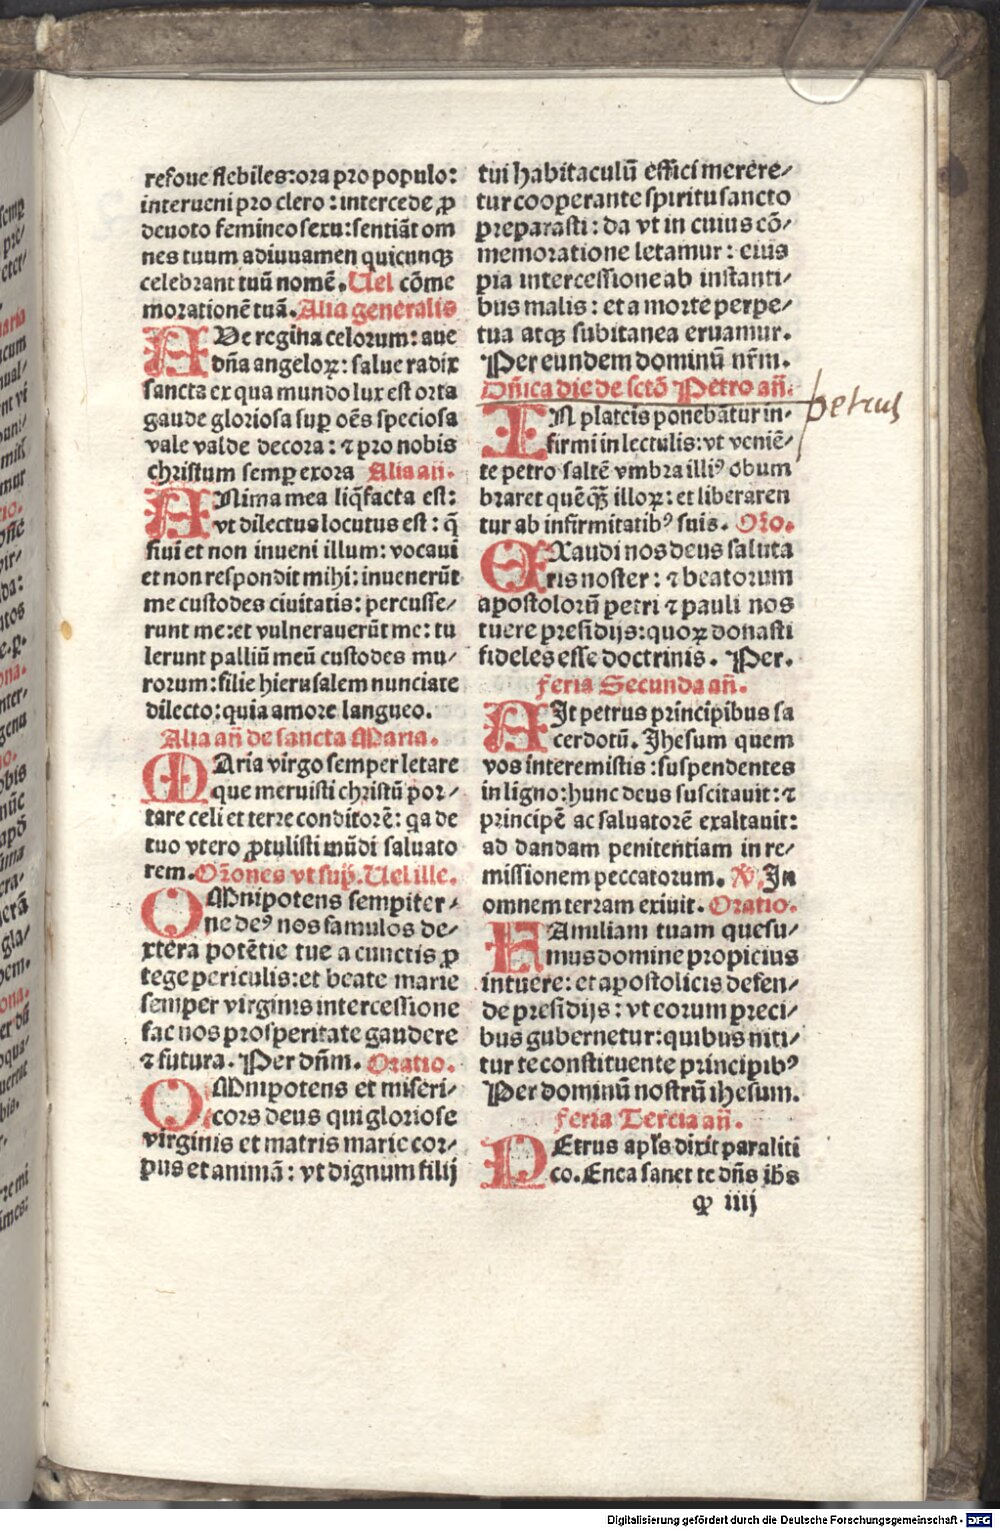 refoue flebiles:ora pro populo:
interueni pro clero : intercede ꝓ
deuoto femineo sexu:sentiāt om
nes tuum adiuuamen quicunqꝫ
celebrant tuū nomē. Uel cōme
morationē tuā. Alia generalis
AUe regina celorum: aue
dn̄a angeloꝝ: salue radix
sancta ex qua mundo lux est orta
gaude gloriosa suꝑ oēs speciosa
vale valde decora: ⁊ pro nobis
christum semꝑ exora Alia an̄.
ANima mea liq̄facta est:
vt dilectus locutus est: q̄
siui et non inueni illum: vocaui
et non respondit mihi: inuenerūt
me custodes ciuitatis: percusse⸗
runt me:et vulnerauerūt me: tu
lerunt palliū meū custodes mu⸗
rorum:filie hierusalem nunciate
dilecto:quia amore langueo.
Alia an̄ de sancta Maria.
MAria virgo semper letare
que meruisti christū por⸗
tare celi et terre conditorē: qa de
tuo vtero ꝓtulisti mūdi saluato
rem. Or̄ones vt sup̄. Uel ille.
OMnipotens sempiter⸗
ne deꝰ nos famulos de⸗
xtera potētie tue a cunctis ꝓ
tege periculis:et beate marie
semper virginis intercessione
fac nos prosperitate gaudere
⁊ futura. Per dn̄m. Oratio.
OMnipotens et miseri⸗
cors deus qui gloriose
virginis et matris marie cor⸗
pus et animā: vt dignum filij
tui habitaculū effici merere⸗
tur cooperante spiritu sancto
preparasti : da vt in cuius cō⸗
memoratione letamur : eius
pia intercessione ab instanti⸗
bus malis : et a morte perpe⸗
tua atqꝫ subitanea eruamur.
Per eundem dominū nr̄m.
Dn̄ica die de sctō Petro an̄.
petrus
IN plateis ponebātur in⸗
firmi in lectulis: vt veniē⸗
te petro saltē vmbra illiꝰ obum
braret quēqꝫ̄ illoꝝ: et liberaren
tur ab infirmitatibꝰ suis. Or̄o.
EXaudi nos deus saluta
ris noster : ⁊ beatorum
apostolorū petri ⁊ pauli nos
tuere presidijs:quoꝝ donasti
fideles esse doctrinis. Per.
feria Secunda an̄.
AIt petrus principibus sa
cerdotū. Jhesum quem
vos interemistis :suspendentes
in ligno:hunc deus suscitauit: ⁊
principē ac saluatorē exaltauit:
ad dandam penitentiam in re⸗
missionem peccatorum. ℣. In
omnem terram exiuit. Oratio.
FAmiliam tuam quesu⸗
mus domine propicius
intuere: et apostolicis defen⸗
de presidijs : vt eorum preci⸗
bus gubernetur: quibus niti⸗
tur te constituente principibꝰ
Per dominū nostrū ihesum.
feria Tercia an̄.
PEtrus apl̄s dixit paraliti
co. Enea sanet te dn̄s ihs
qꝫ iiij
Digitalisierung gefördert durch die Deutsche Forschungsgemeinschaft - DFG